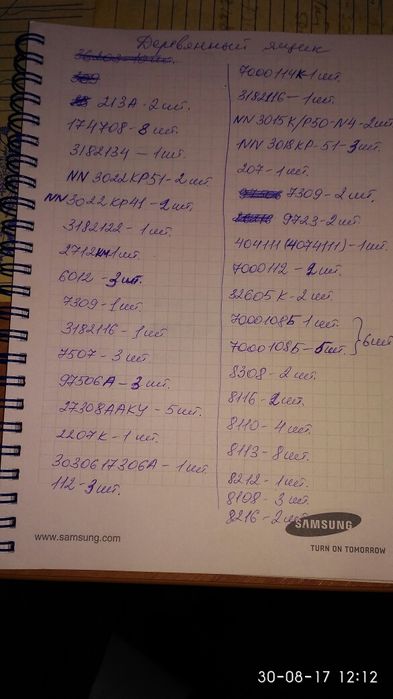 Деревянный ящик
213А - 2 шт.
174708 - 8 шт.
3182134 - 1 шт.
NN 3022КР51 - 2 шт
NN 3022КР41 - 2 шт.
3182122 - 1 шт.
2712КМ 1 шт.
6012 - 3 шт.
7309 - 1 шт.
3182116 - 1 шт
7507 - 3 шт
97506А - 3 шт.
27308ААКУ - 5 шт.
2207К - 1 шт.
3030617306А - 1 шт.
112 - 3 шт.
7000114К - 1 шт.
3182116 - 1 шт.
NN 3015К/Р50-N4 - 2 шт
NN 3018КР-51 - 3 шт.
207 - 1 шт.
7309 - 2 шт.
9723 - 2 шт.
404111 (4074111) - 1 шт.
7000112 - 2 шт.
32605К - 2 шт.
7000108Б 1 шт.
7000108Б - 5 шт. } 6 шт
8308 - 2 шт.
8116 - 2 шт.
8110 - 4 шт.
8113 - 8 шт.
8212 - 1 шт.
8108 - 3 шт.
8216 - 2 шт
SAMSUNG
www.samsung.com
TURN ON TOMORROW
30-08-17 12:12